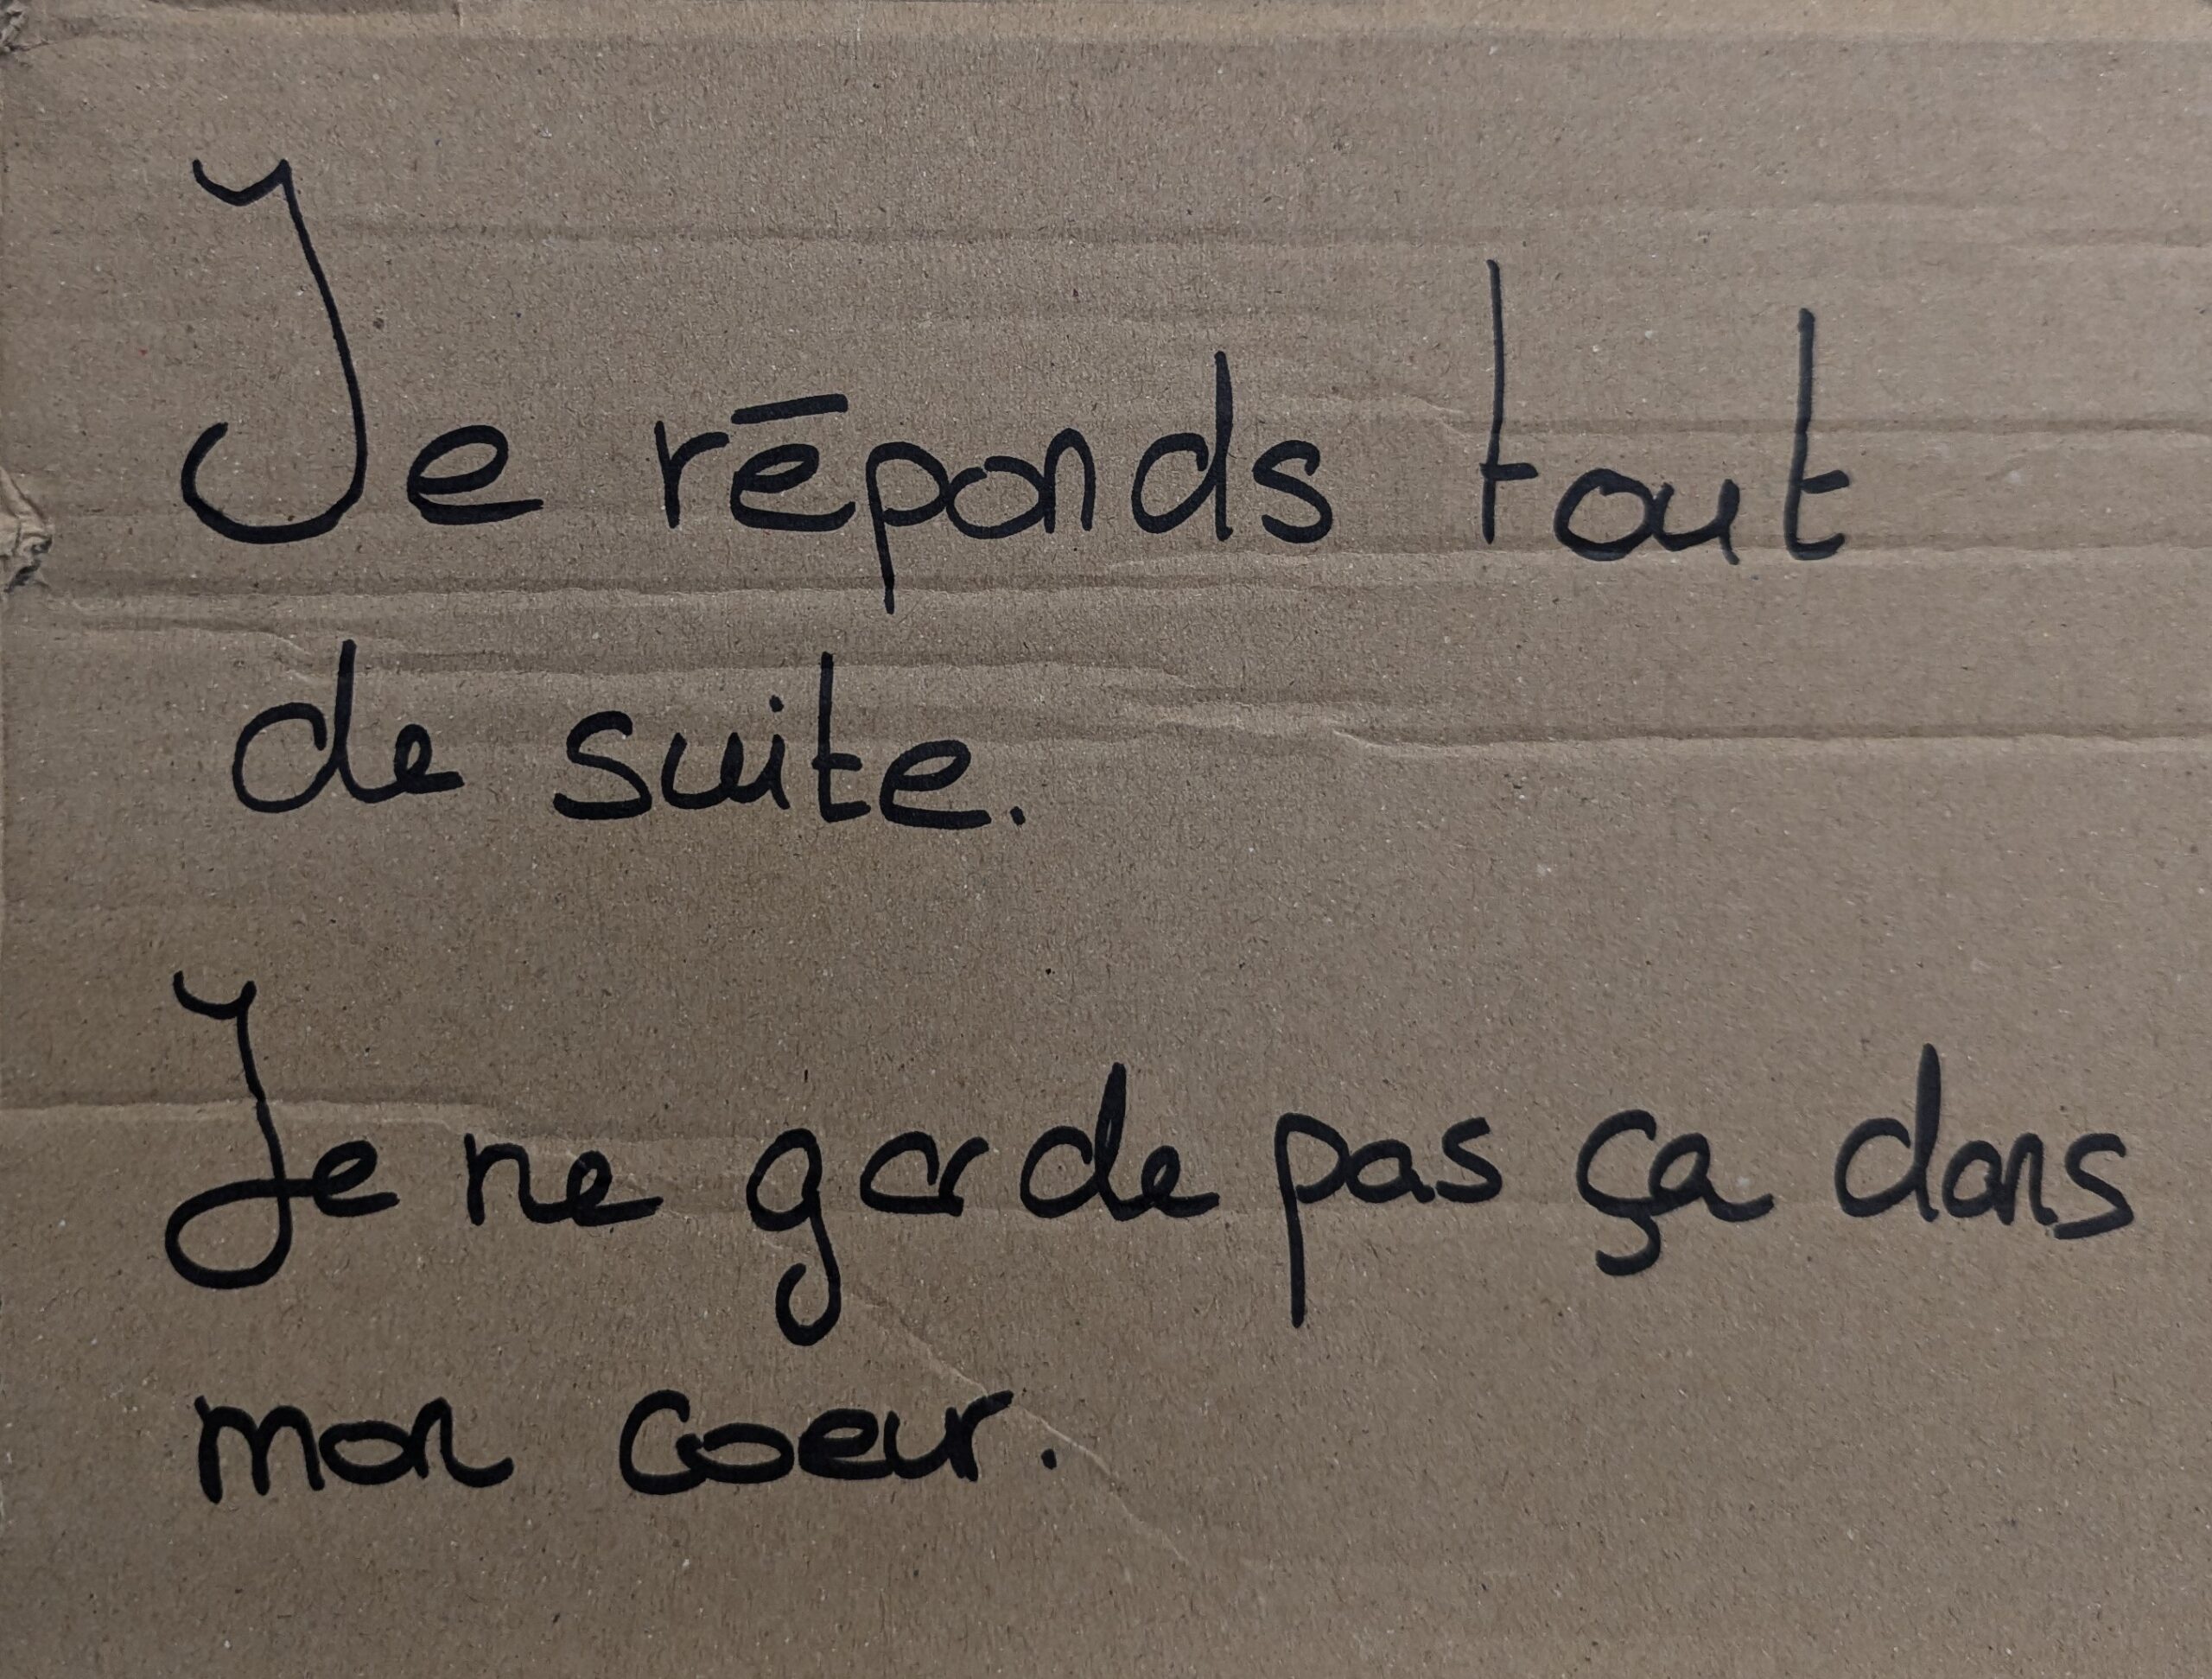 Je réponds tout
de suite.
Je ne garde pas ça dans
mon coeur.